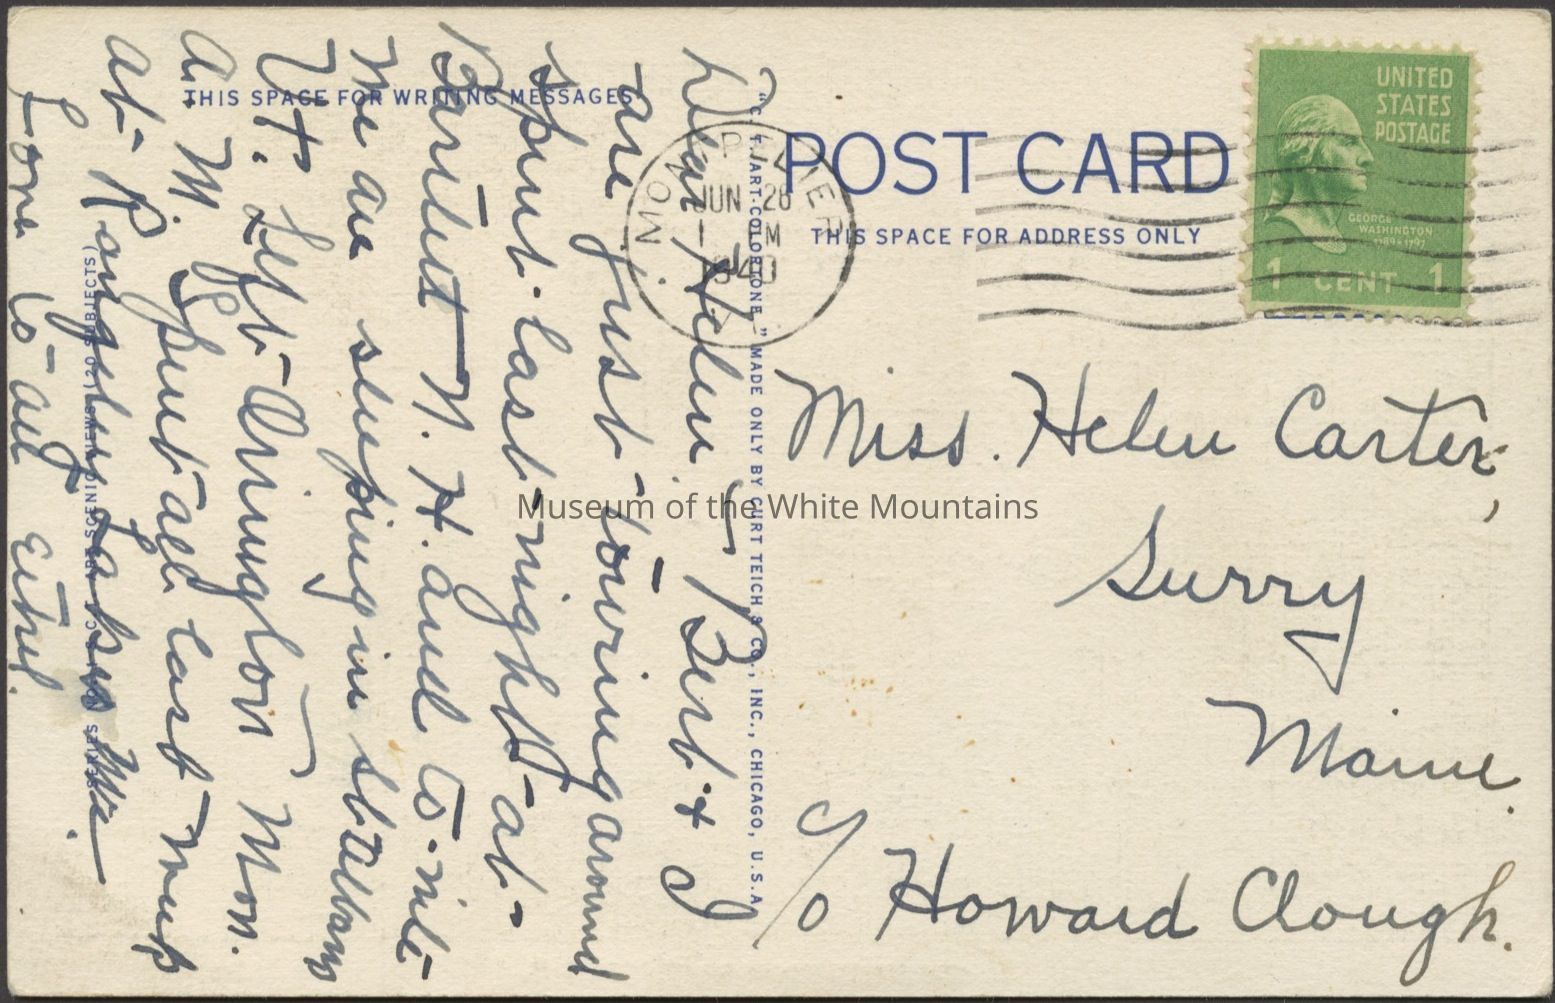 THIS SPACE FOR WRITING MESSAGES
POST CARD
THIS SPACE FOR ADDRESS ONLY
UNITED
STATES
POSTAGE
GEORGE
WASHINGTON
1789-1797
1 CENT 1
MONTPELIER
JUN 28
1 PM
1940
VT.
Dear Helen — Bert & I
are just touring around
spent last night at
Bartlett N. H. and to-nite
we are sleeping in St Albans
Vt. Left Arrington Mon.
A. M. Spent all last week
at Rangeley Lakes Me.
Love to all Ethel.
Miss. Helen Carter,
Surry
Maine.
c/o Howard Clough.
"C. T. ART-COLORTONE" MADE ONLY BY CURT TEICH & CO., INC., CHICAGO, U.S.A.
SCENIC VIEWS (20 SUBJECTS)
Museum of the White Mountains